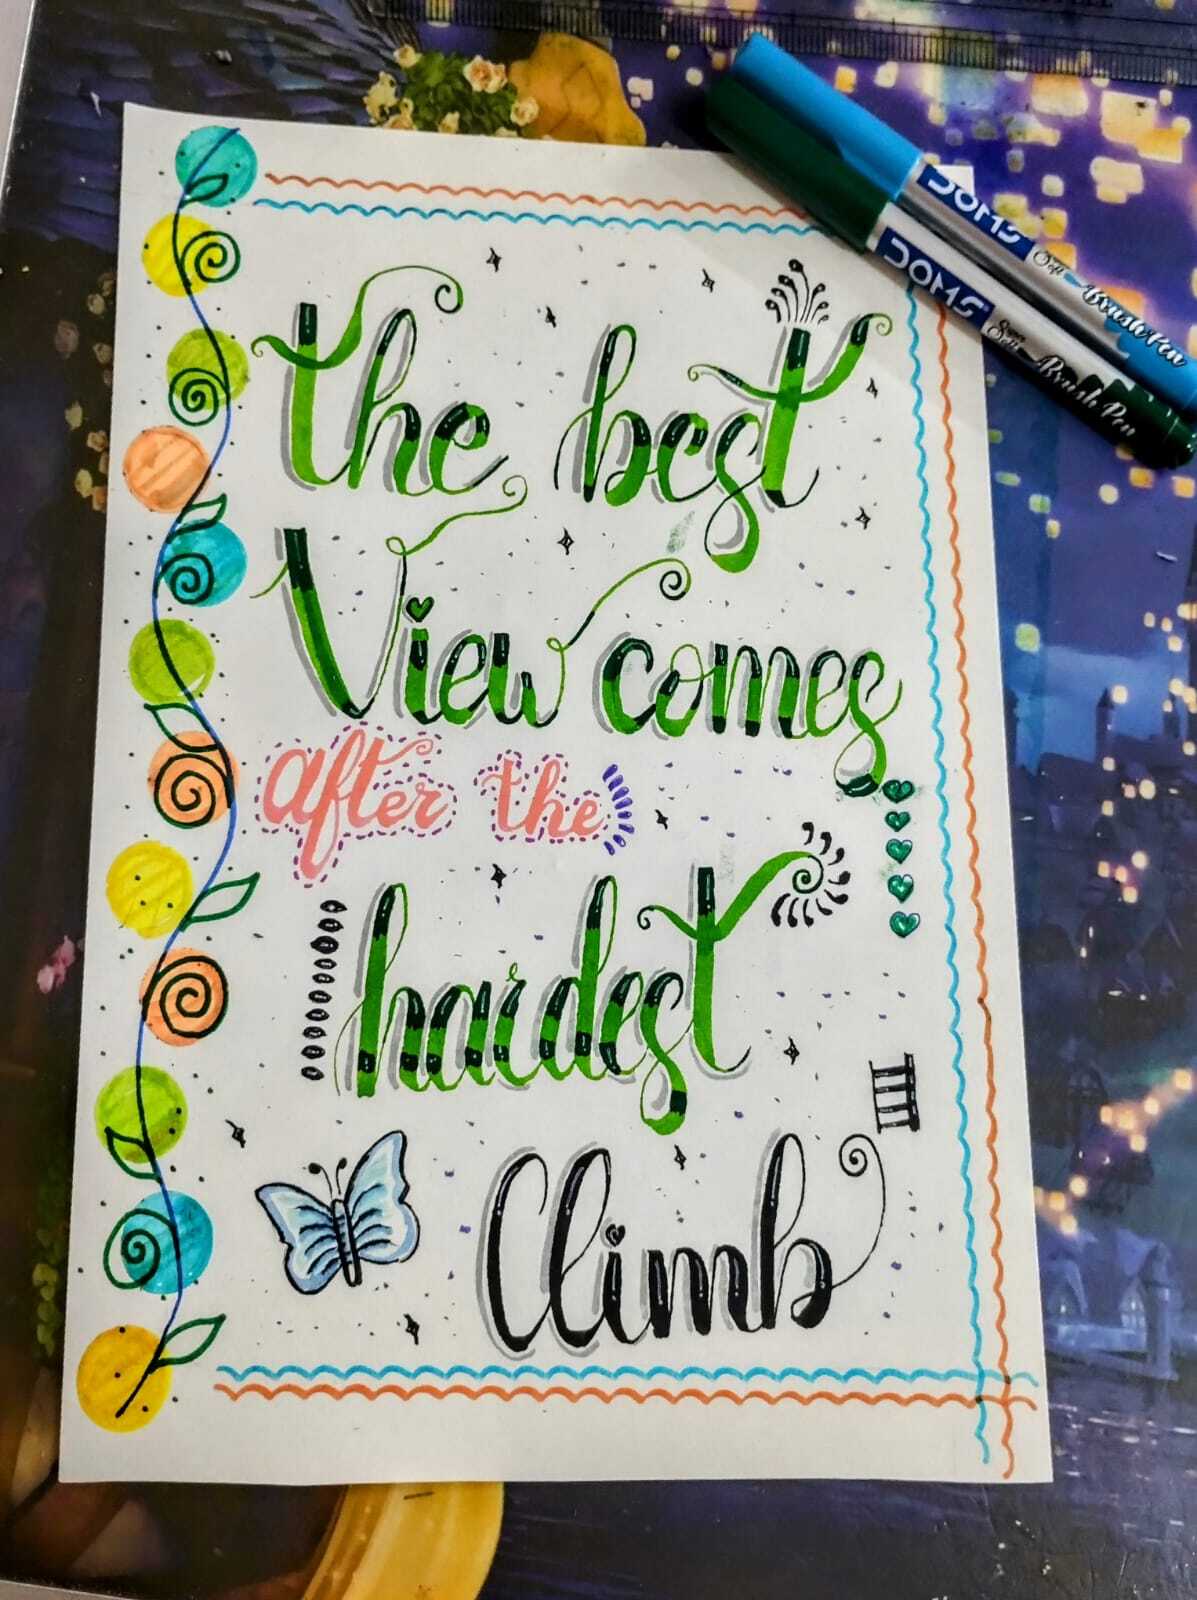 the best
View comes
after the
hardest
Climb
DOMS
Soft
Brush Pen
DOMS
Super
Soft
Brush Pen